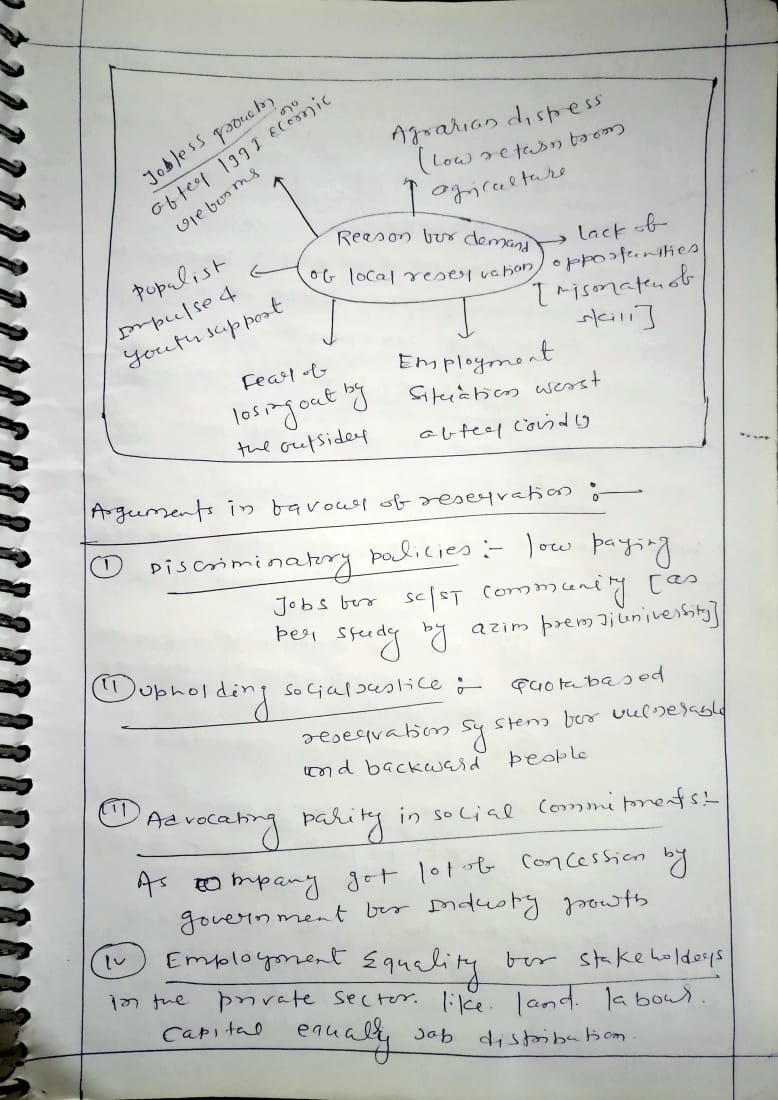 Jobless growth
after 1991 Ecomic
reforms
no
Agrarian distress
(Low return from
agriculture
Reason for demand
of local reservation
Lack of
opportunities
[mismatch of
skill]
Populist
Impulse &
youth support
Fear of
losing out by
the outsider
Employment
situation worst
after Covid 19
Arguments in favour of reservation :-
① Discriminatory policies :- low paying
Jobs for SC/ST community [as
per study by azim premji university]
(II) Upholding social justice :- Quota based
reservation system for vulnerable
and backward people
(III) Advocating parity in social commitments :-
As company got lot of concession by
government for Industry growth
(IV) Employment Equality for stakeholders
in the private sector. like. land. labour.
Capital equally Job distribution.